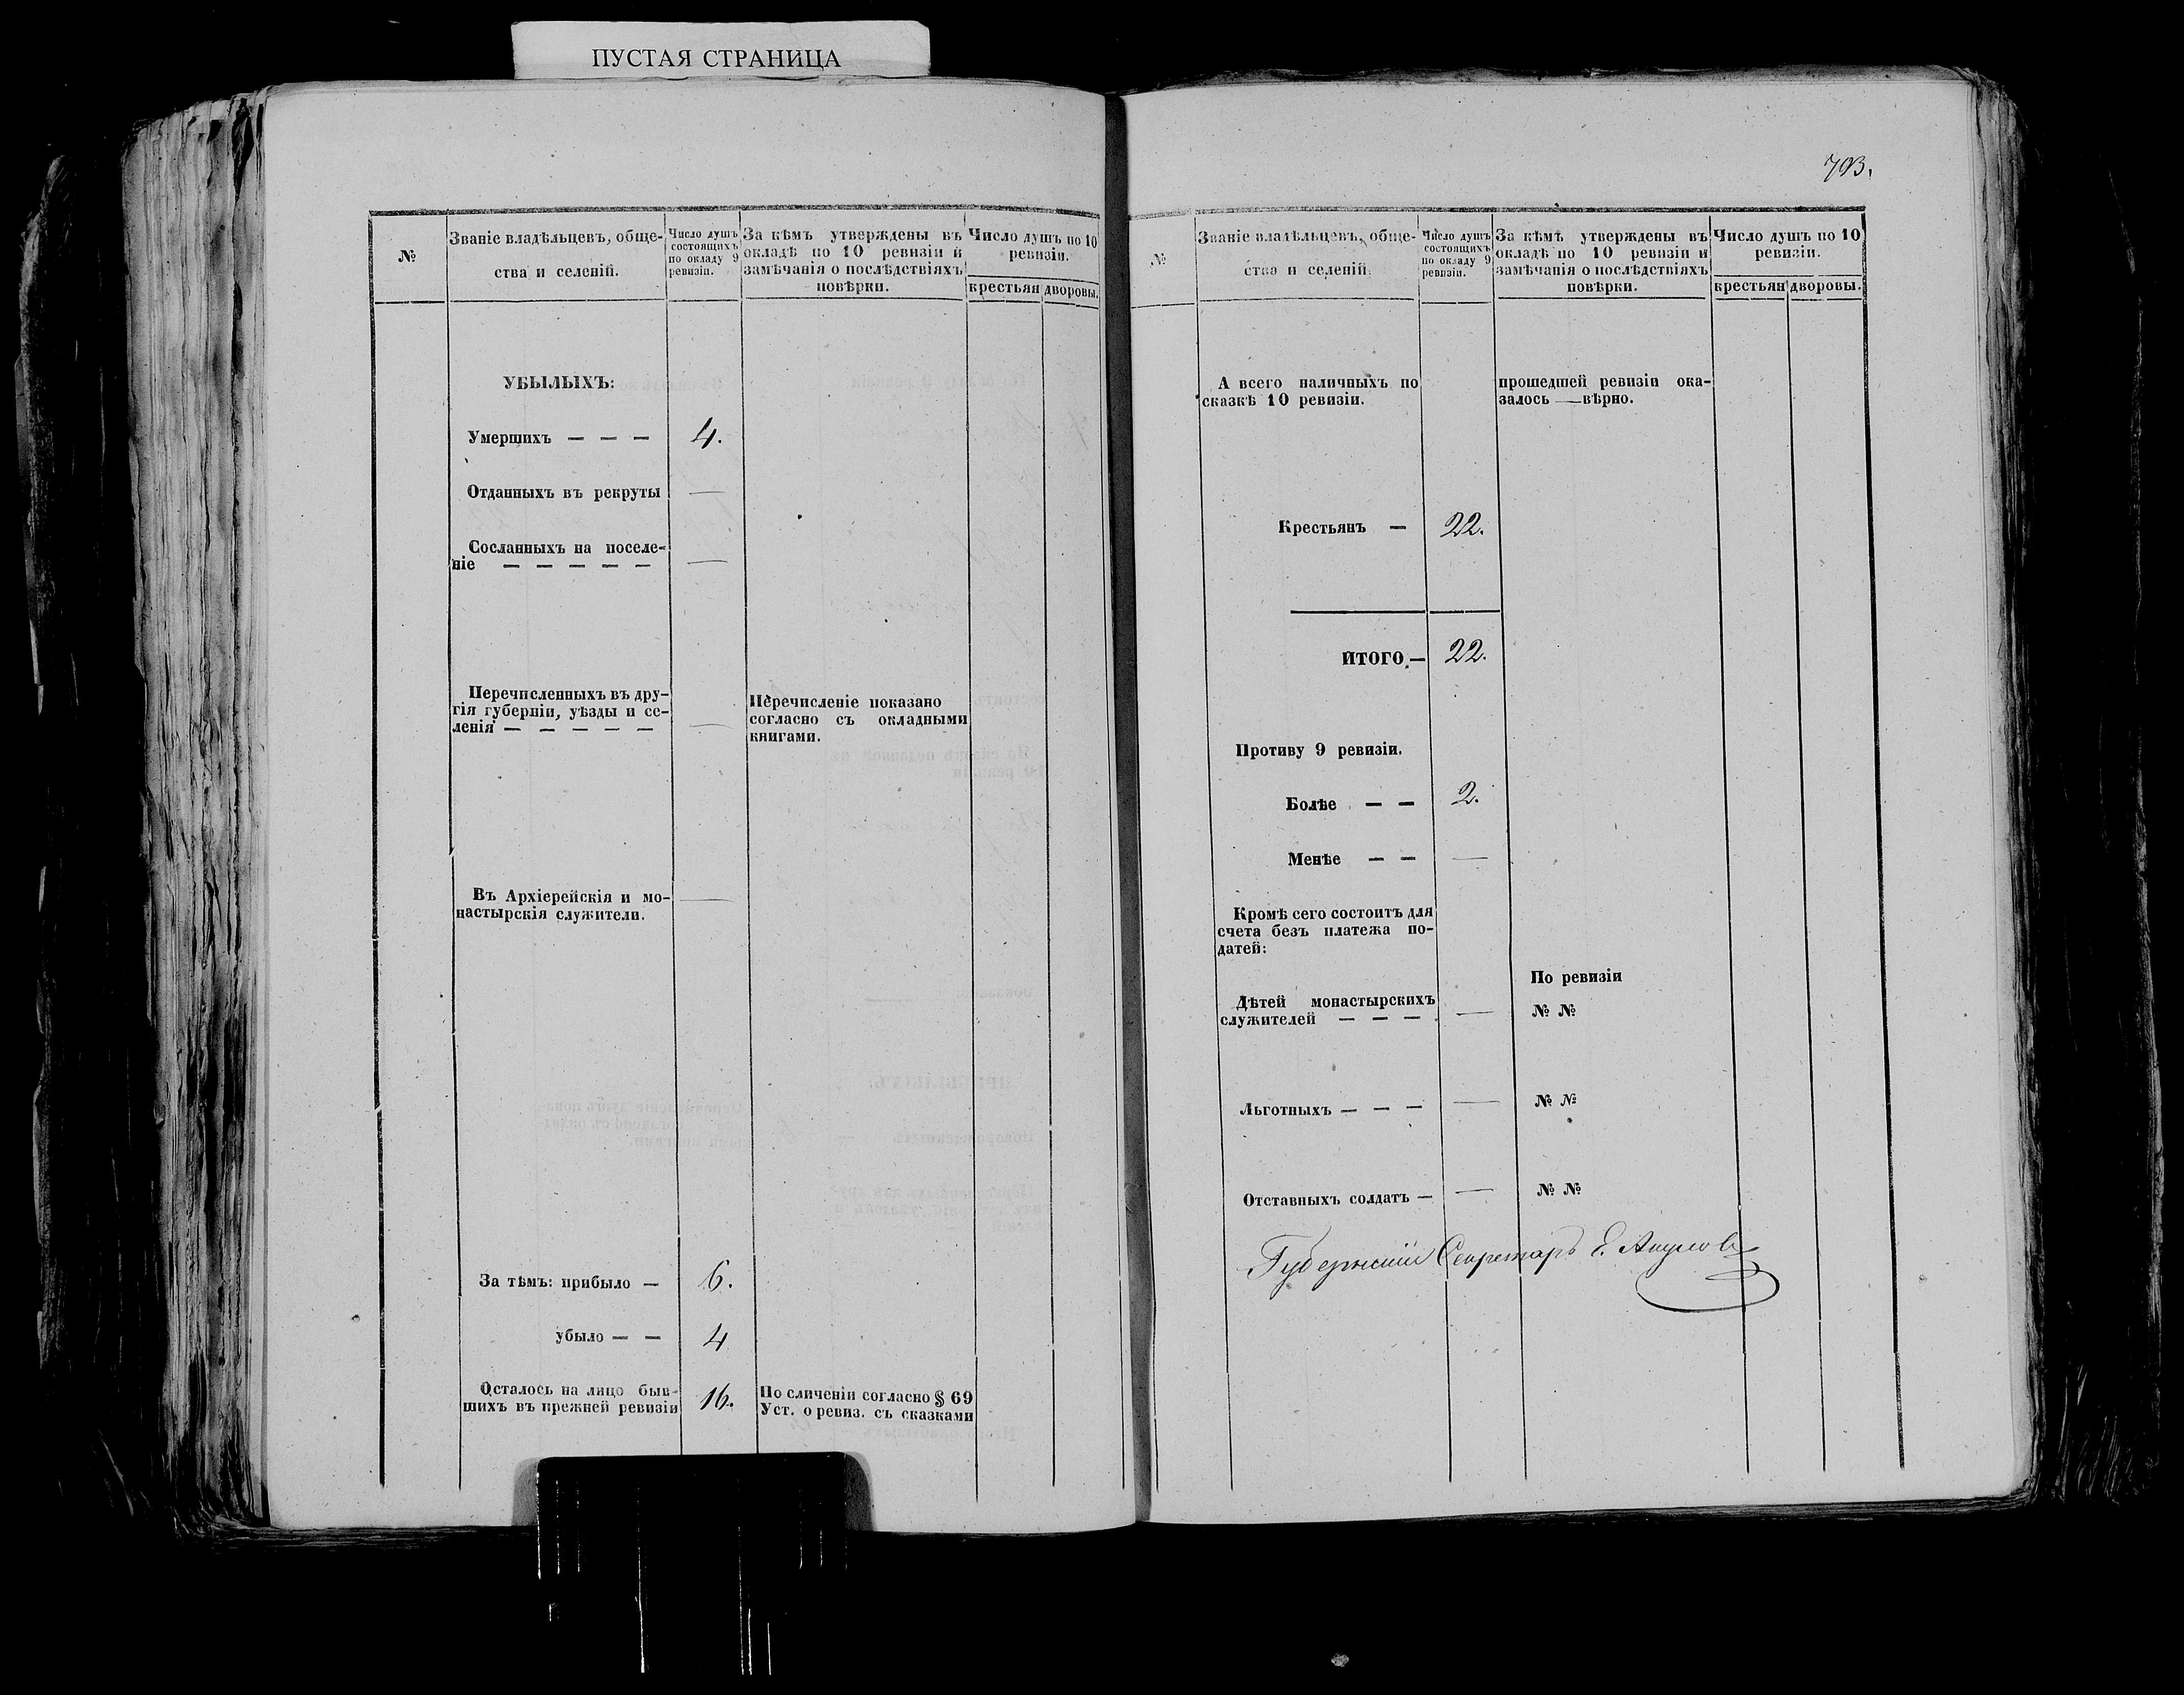 ПУСТАЯ СТРАНИЦА
№
Званіе владѣльцевъ, обще-
ства и селеній.
Число душъ
состоящихъ
по окладу 9
ревизіи.
За кѣмъ утверждены въ
окладѣ по 10 ревизіи и
замѣчанія о послѣдствіяхъ
повѣрки.
Число душъ по 10
ревизіи.
крестьян
дворовы.
УБЫЛЫХЪ:
Умершихъ — — — 4.
Отданныхъ въ рекруты —
Сосланныхъ на поселе-
ніе — — — — — —
Перечисленныхъ въ дру-
гія губерніи, уѣзды и се-
ленія — — — — — —
Перечисленіе показано
согласно съ окладными
книгами.
Въ Архіерейскія и мо-
настырскія служители. —
За тѣмъ: прибыло — 6.
убыло — — 4
Осталось на лицо быв-
шихъ въ прежней ревизіи 16.
По сличеніи согласно § 69
Уст. о ревиз. съ сказками
793.
№
Званіе владѣльцевъ, обще-
ства и селеній.
Число душъ
состоящихъ
по окладу 9
ревизіи.
За кѣмъ утверждены въ
окладѣ по 10 ревизіи и
замѣчанія о послѣдствіяхъ
повѣрки.
Число душъ по 10
ревизіи.
крестьян
дворовы.
А всего наличныхъ по
сказкѣ 10 ревизіи.
прошедшей ревизіи ока-
залось — вѣрно.
Крестьянъ — 22.
ИТОГО. — 22.
Противу 9 ревизіи.
Болѣе — — 2.
Менѣе — — —
Кромѣ сего состоитъ для
счета безъ платежа по-
датей:
По ревизіи
Дѣтей монастырскихъ
служителей — — — — № №
Льготныхъ — — — — № №
Отставныхъ солдатъ — — № №
Губернскій Секретарь Е.